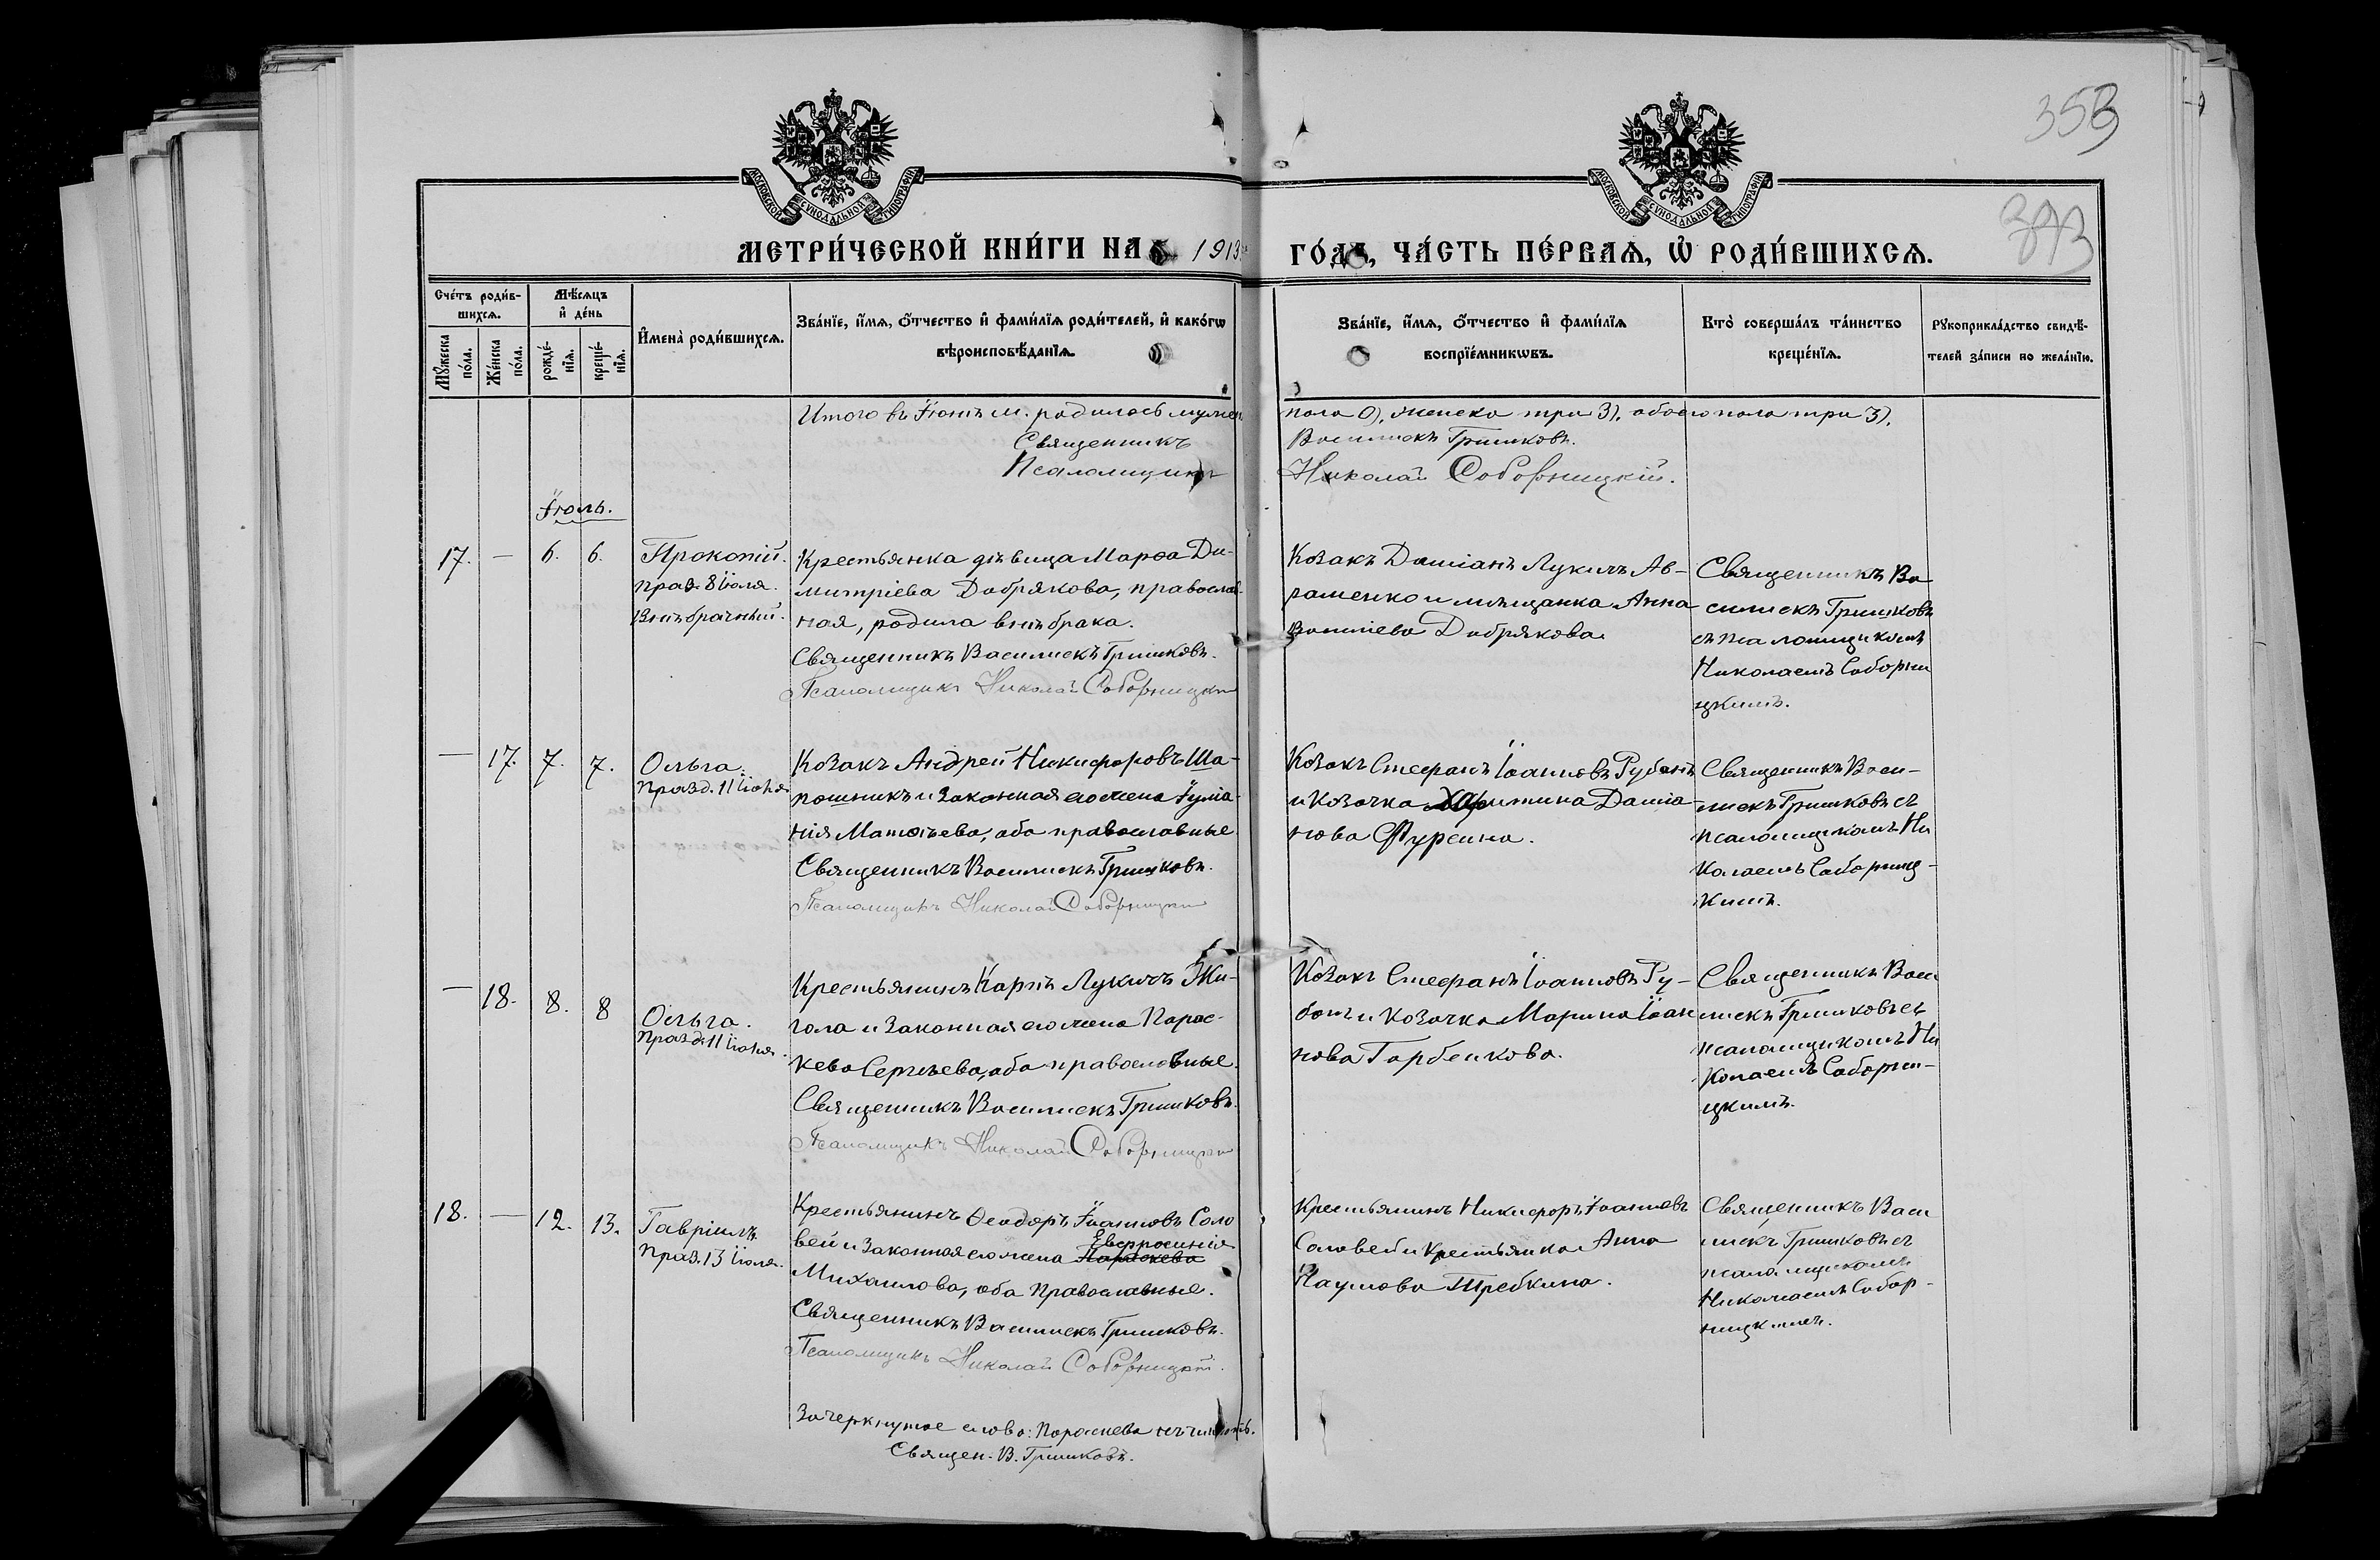 353
373
МОСКОВСКОЙ СѴНОДАЛЬНОЙ ТИПОГРАФІИ
МОСКОВСКОЙ СѴНОДАЛЬНОЙ ТИПОГРАФІИ
МЕТРИ́ЧЕСКОЙ КНИ́ГИ НА 1913 ГО́ДЪ, ЧА́СТЬ ПЕ́РВАѦ, Ѡ҆ РОДИ́ВШИХСѦ.
Сче́тъ роди́в-
шихсѧ.
Мꙋ́жеска по́ла.
Же́нска по́ла.
Мѣ́сѧцъ
и҆ де́нь
рожде́-
нїѧ.
креще́-
нїѧ.
И҆мена̀ роди́вшихсѧ.
Зва́нїе, и҆́мѧ, ѻ҆́тчество и҆ фами́лїѧ роди́телей, и҆ како́гѡ
вѣроисповѣ́данїѧ.
Зва́нїе, и҆́мѧ, ѻ҆́тчество и҆ фами́лїѧ
воспрїе́мникѡвъ.
Кто̀ соверша́лъ та́инство
креще́нїѧ.
Рꙋкоприкла́дство свидѣ́-
телей за́писи по жела́нїю.
Итого въ Іюнѣ м. родилось мужеск.
пола 0), женска три 3), обоего пола три 3).
Священникъ
Василискъ Гришковъ.
Псаломщикъ
Николай Соборницкій.
Іюль.
17. — 6. 6.
Прокопій.
праз. 8 Іюля.
Внѣбрачный.
Крестьянка дѣвица Марѳа Ди-
митріева Добрякова, православ-
ная, родила внѣ брака.
Священникъ Василискъ Гришковъ.
Псаломщикъ Николай Соборницкій
Козакъ Даміанъ Лукичъ Ав-
раменко и мѣщанка Анна
Василіева Добрякова.
Священникъ Ва
силискъ Гришковъ
съ псаломщикомъ
Николаемъ Соборни
цкимъ.
— 17. 7. 7.
Ольга.
Празд. 11 Іюля
Козакъ Андрей Никифоровъ Ша-
пошникъ и законная его жена Іуліа-
нія Матѳіева, оба православные
Священникъ Василискъ Гришковъ.
Псаломщикъ Николай Соборницкій
Козакъ Стефанъ Іоанновъ Рубанъ
и козачка Харитина Даміа-
нова Фурсина.
Священникъ Васи-
лискъ Гришковъ съ
псаломщикомъ Ни
колаемъ Соборниц-
кимъ.
— 18. 8. 8
Ольга.
Празд. 11 Іюля.
Крестьянинъ Карпъ Лукичъ Жи-
гола и законная его жена Парас-
кева Сергѣева, оба православные.
Священникъ Василискъ Гришковъ.
Псаломщикъ Николай Соборницкій
Козакъ Стефанъ Іоанновъ Ру-
банъ и козачка Марина Іоан
нова Горбенкова.
Священникъ Васи
лискъ Гришковъ съ
псаломщикомъ Ни
колаемъ Соборни-
цкимъ.
18. — 12. 13.
Гавріилъ.
Праз. 13 Іюля.
Крестьянинъ Ѳеодоръ Іоанновъ Соло
Евфросинія
вей и законная его жена Параскева
Михаилова, оба православные.
Священникъ Василискъ Гришковъ.
Псаломщикъ Николай Соборницкій.
Крестьянинъ Никифоръ Іоанновъ
Соловей и крестьянка Анна
Наумова Требкина.
Священникъ Васи
лискъ Гришковъ съ
псаломщикомъ
Николаемъ Собор-
ницкимъ.
Зачеркнутое слово: Параскева не читать.
Священ. В. Гришковъ.